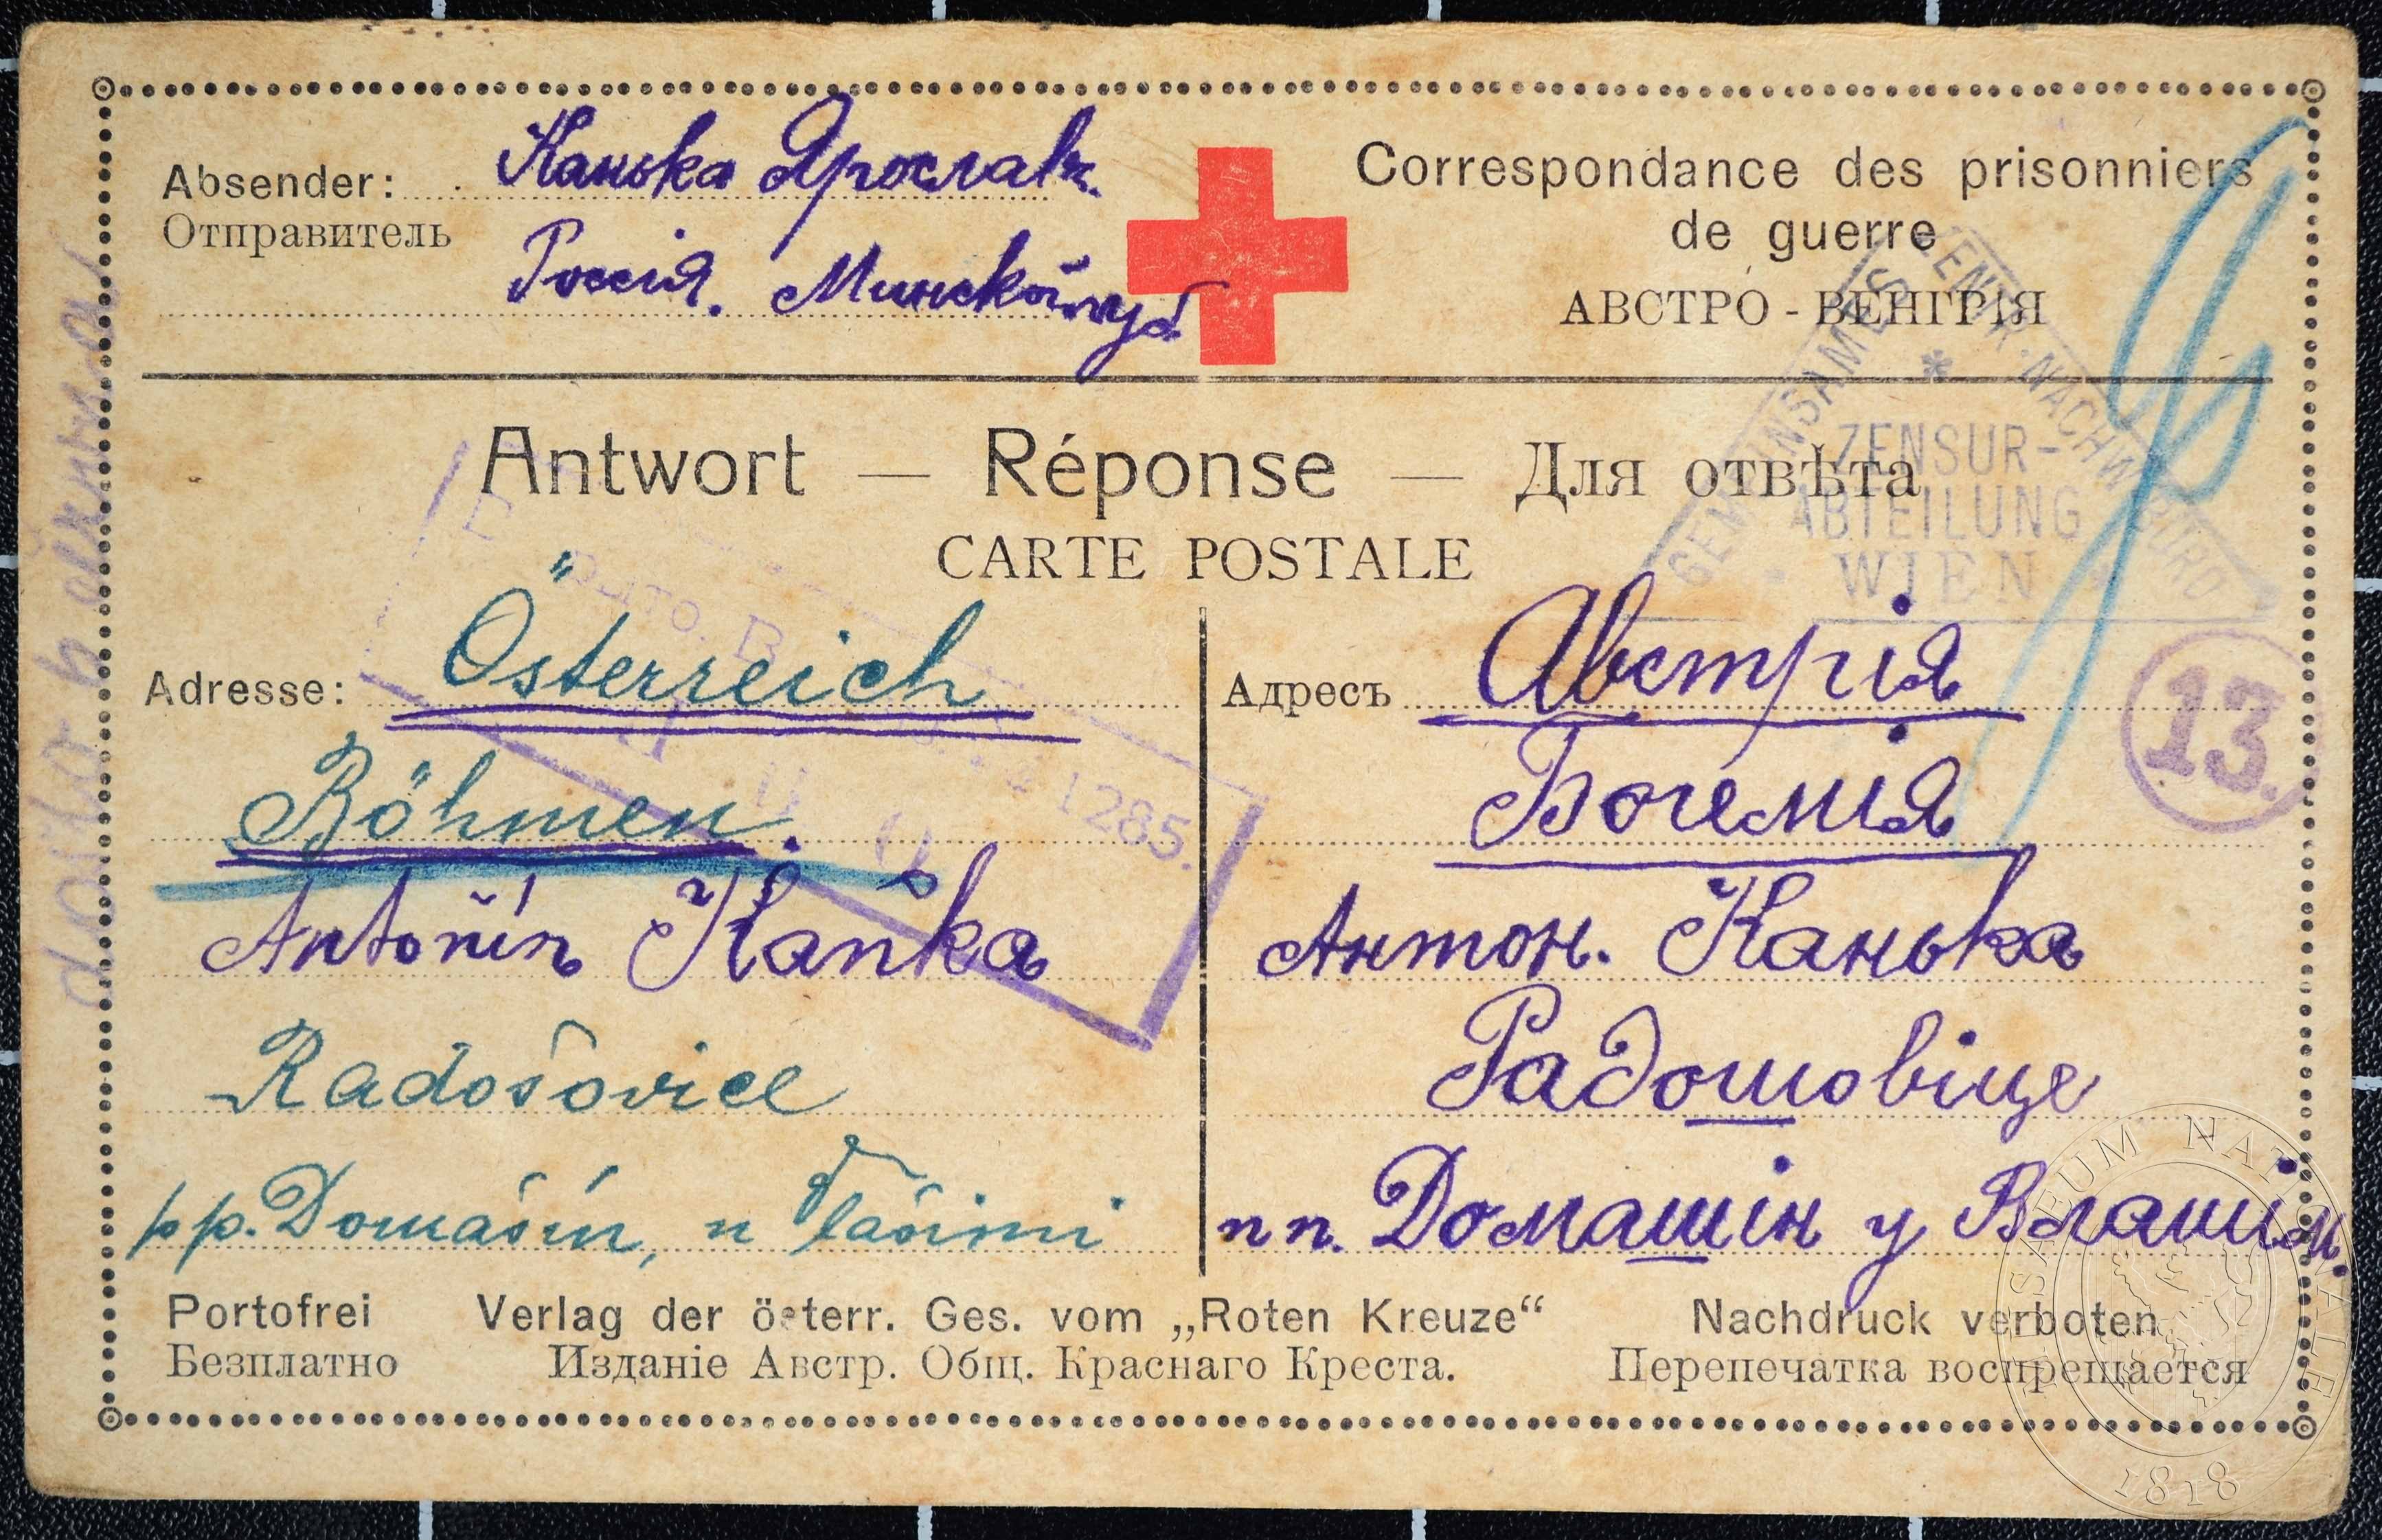 Absender: Канька Ярославъ.
Отправитель
Россія. Минской губ
Correspondance des prisonniers
de guerre
АВСТРО - ВЕНГРІЯ
Antwort — Réponse — Для отвѣта
CARTE POSTALE
GEMEINSAMES ZENTR. NACHW. BÜRO
ZENSUR-
ABTEILUNG
WIEN
13.
1285.
Adresse: Österreich
Böhmen.
Antoňín Kaňka
Radošovice
pp. Domášín, u Vlašimi
Адресъ Австрія
Богемія
Антон. Канька
Радошовіце
пп. Домашін у Влашім.
Portofrei Verlag der österr. Ges. vom „Roten Kreuze“ Nachdruck verboten
Безплатно Изданіе Австр. Общ. Краснаго Креста. Перепечатка воспрещается
došla
MUSEUM NATIONALE
1818